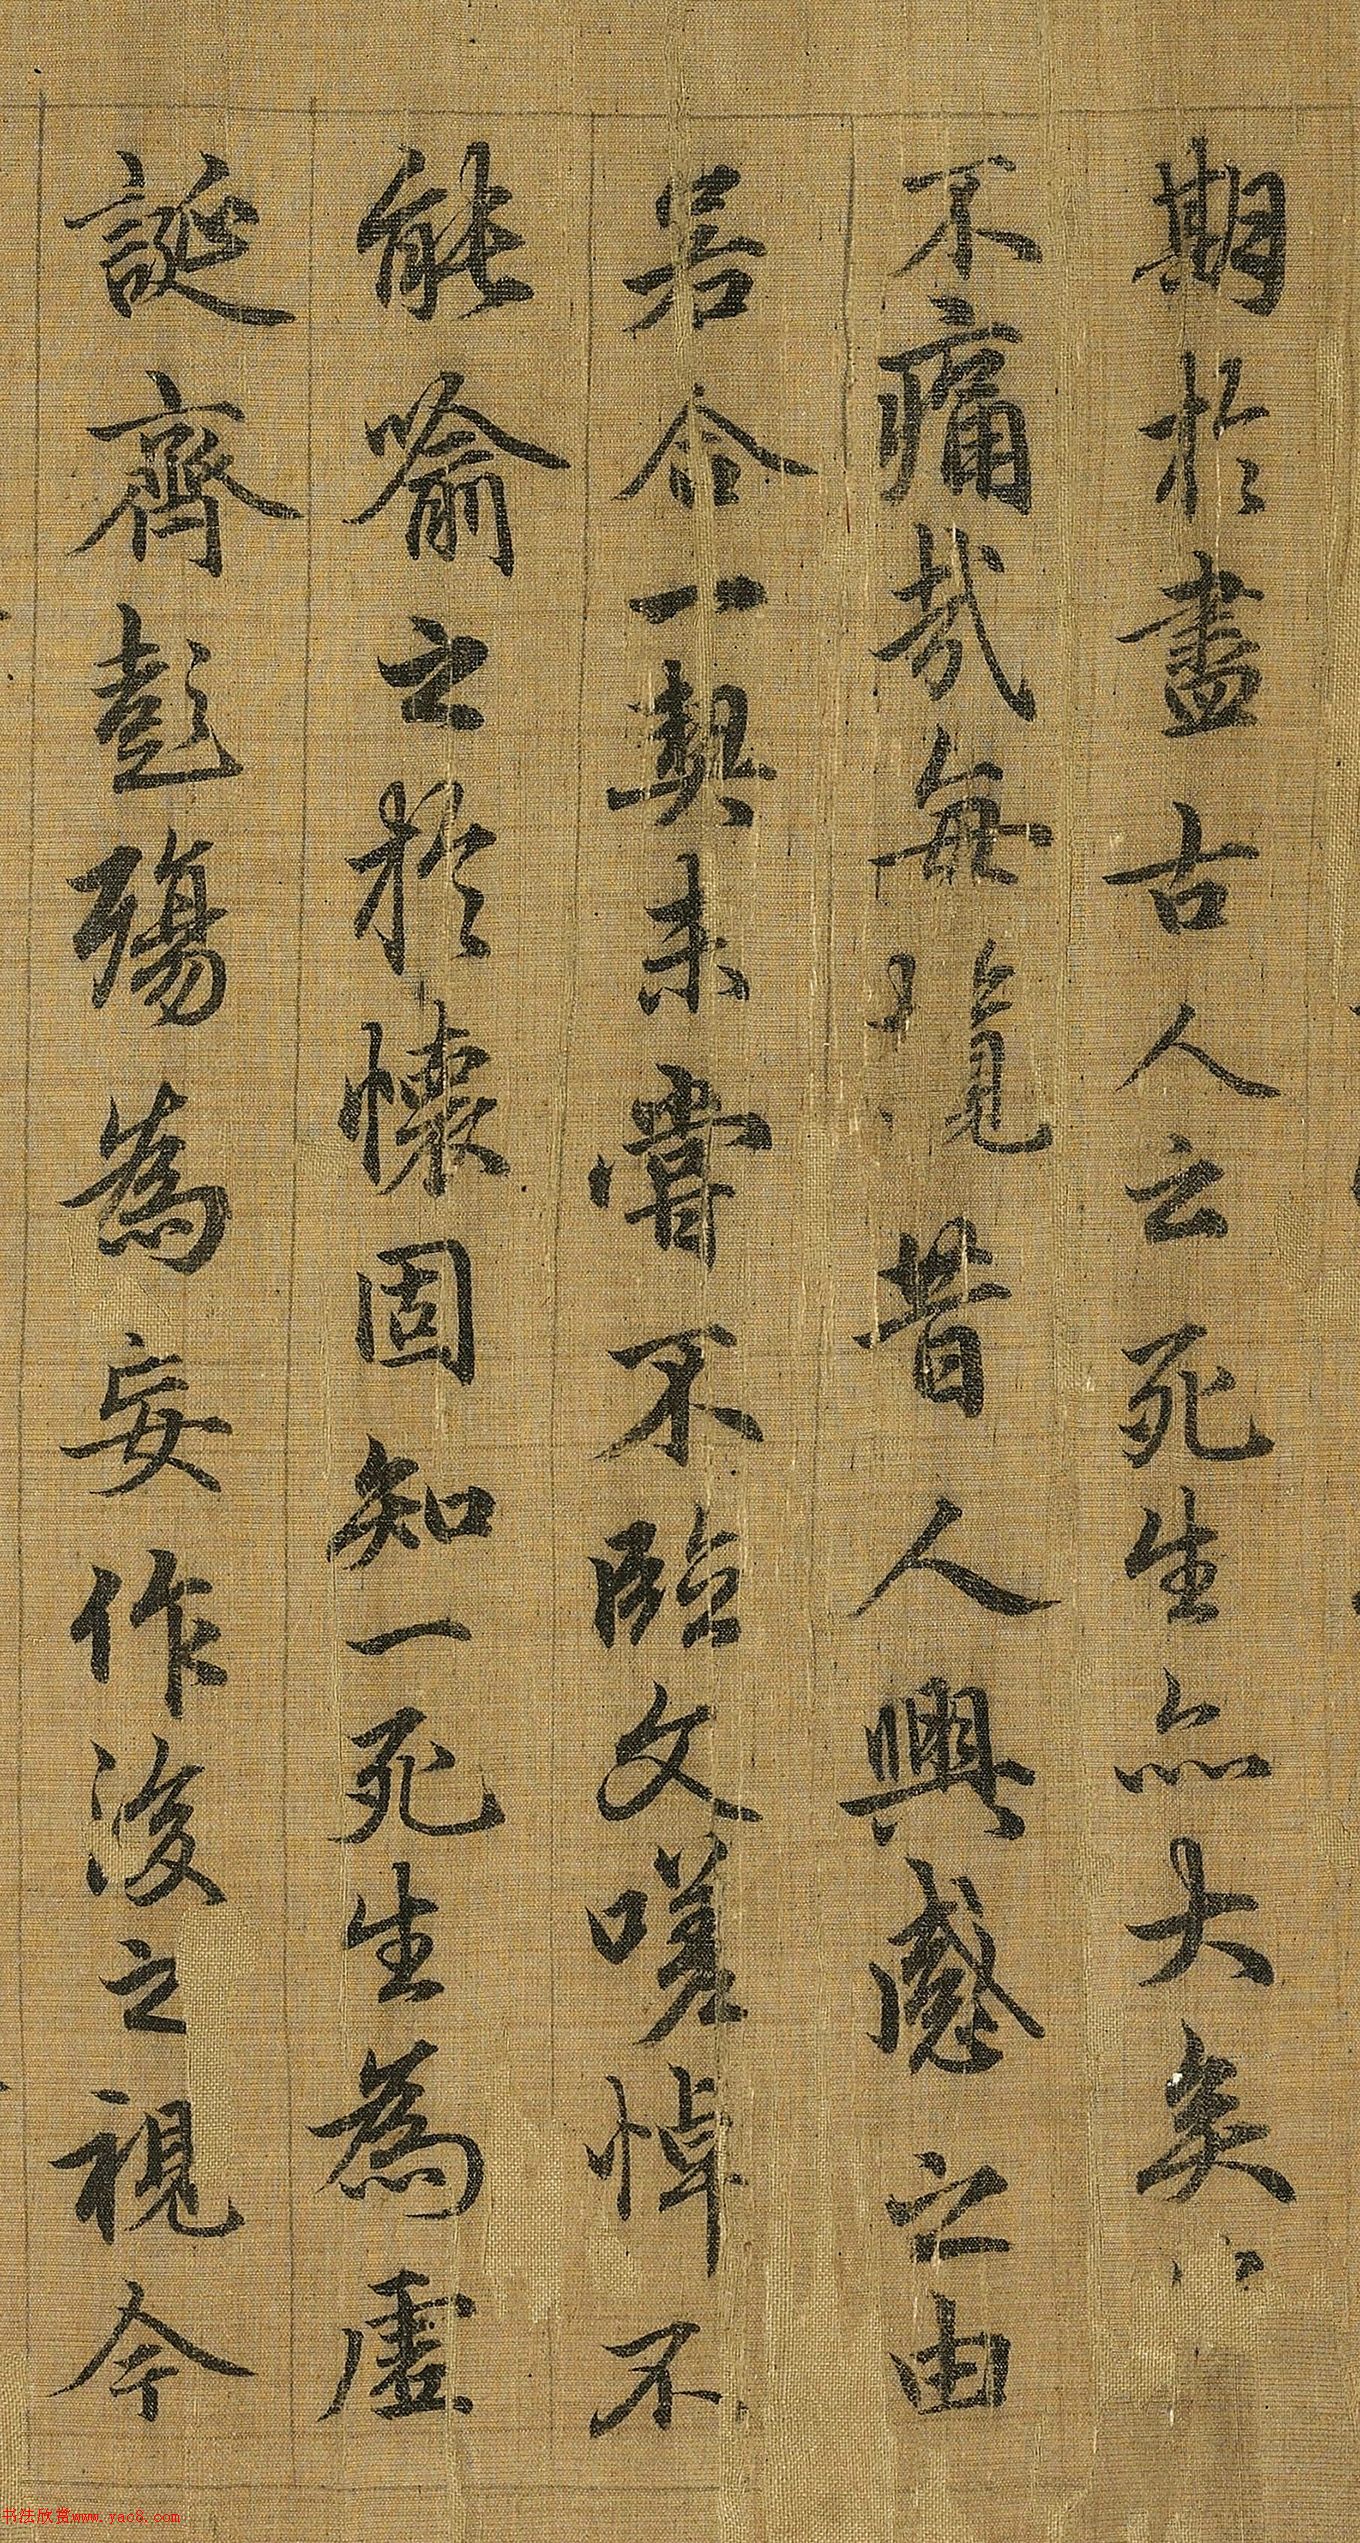 期於盡古人云死生亦大矣
不痛哉每攬昔人興感之由
若合一契未嘗不臨文嗟悼不
能喻之於懷固知一死生為虛
誕齊彭殤為妄作後之視今
书法欣赏www.yac8.com